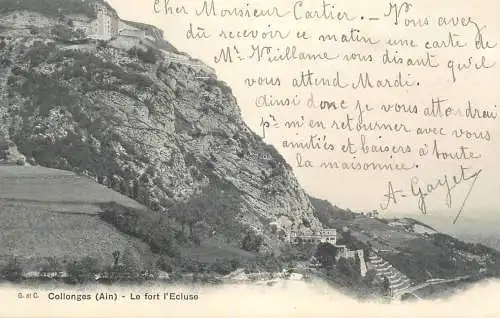 Cher Monsieur Cartier. - Vous avez
dû recevoir ce matin une carte de
Mr Vuillame vous disant qu'il
vous attend Mardi.
Ainsi donc je vous attendrai
pr m'en retourner avec vous
amitiés et baisers à toute
la maisonnée.
A. Gayet
G. et C. Collonges (Ain) - Le fort l'Ecluse